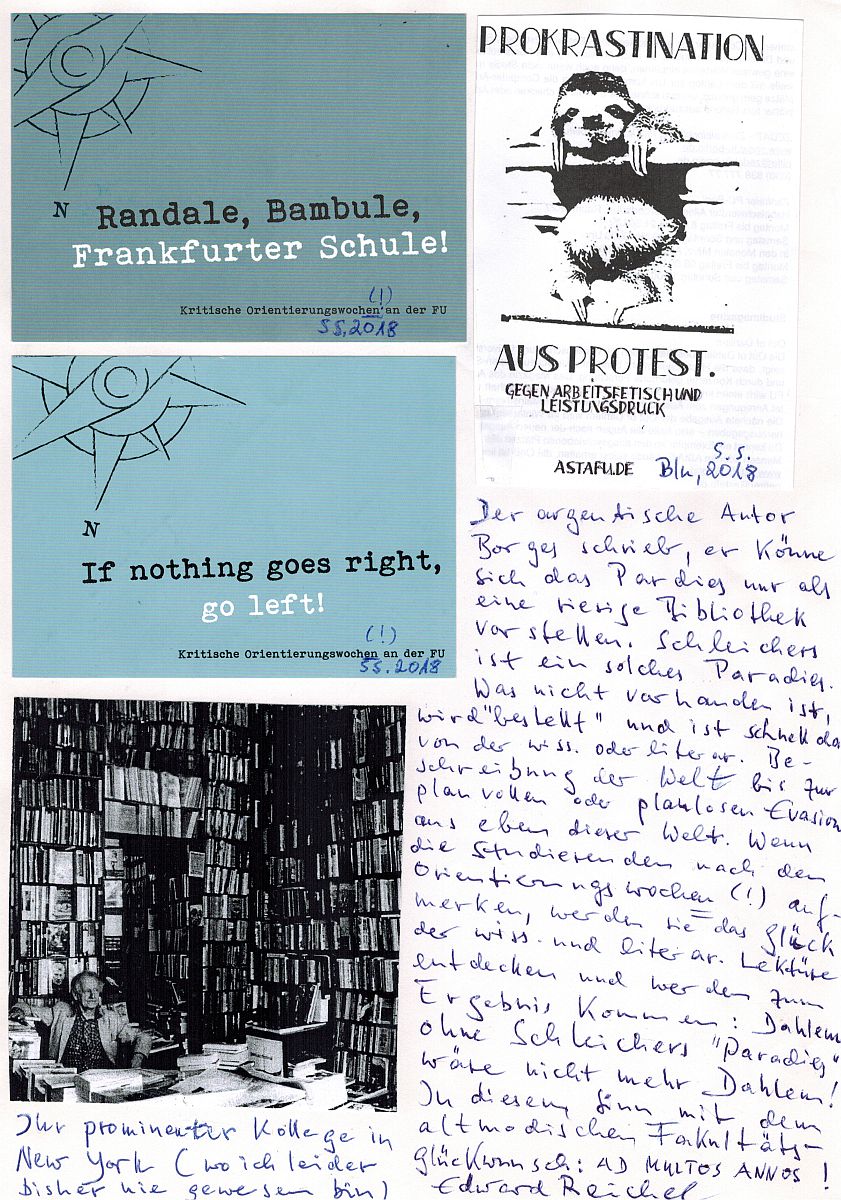 N
Randale, Bambule,
Frankfurter Schule!
(!)
Kritische Orientierungswochen an der FU
SS, 2018
N
If nothing goes right,
go left!
(!)
Kritische Orientierungswochen an der FU
SS. 2018
PROKRASTINATION
AUS PROTEST.
GEGEN ARBEITSFETISCH UND
LEISTUNGSDRUCK
ASTAFU.DE
S.S.
Bln, 2018
Der argentische Autor
Borges schrieb, er könne
sich das Paradies nur als
eine riesige Bibliothek
vorstellen. Schleichers
ist ein solches Paradies.
Was nicht vorhanden ist,
wird "bestellt" und ist schnell da
von der wiss. oder literar. Be-
schreibung der Welt bis zur
planvollen oder planlosen Evasion
aus eben dieser Welt. Wenn
die Studierenden nach den
Orientierungswochen (!) auf-
merken, werden sie das Glück
der wiss. und literar. Lektüre
entdecken und werden zum
Ergebnis kommen: Dahlem
ohne Schleichers "Paradies"
wäre nicht mehr Dahlem!
In diesem Sinn mit dem
altmodischen Fakultäts-
glückwunsch: AD MULTOS ANNOS!
Edward Reichel
Ihr prominenter Kollege in
New York (wo ich leider
bisher nie gewesen bin)